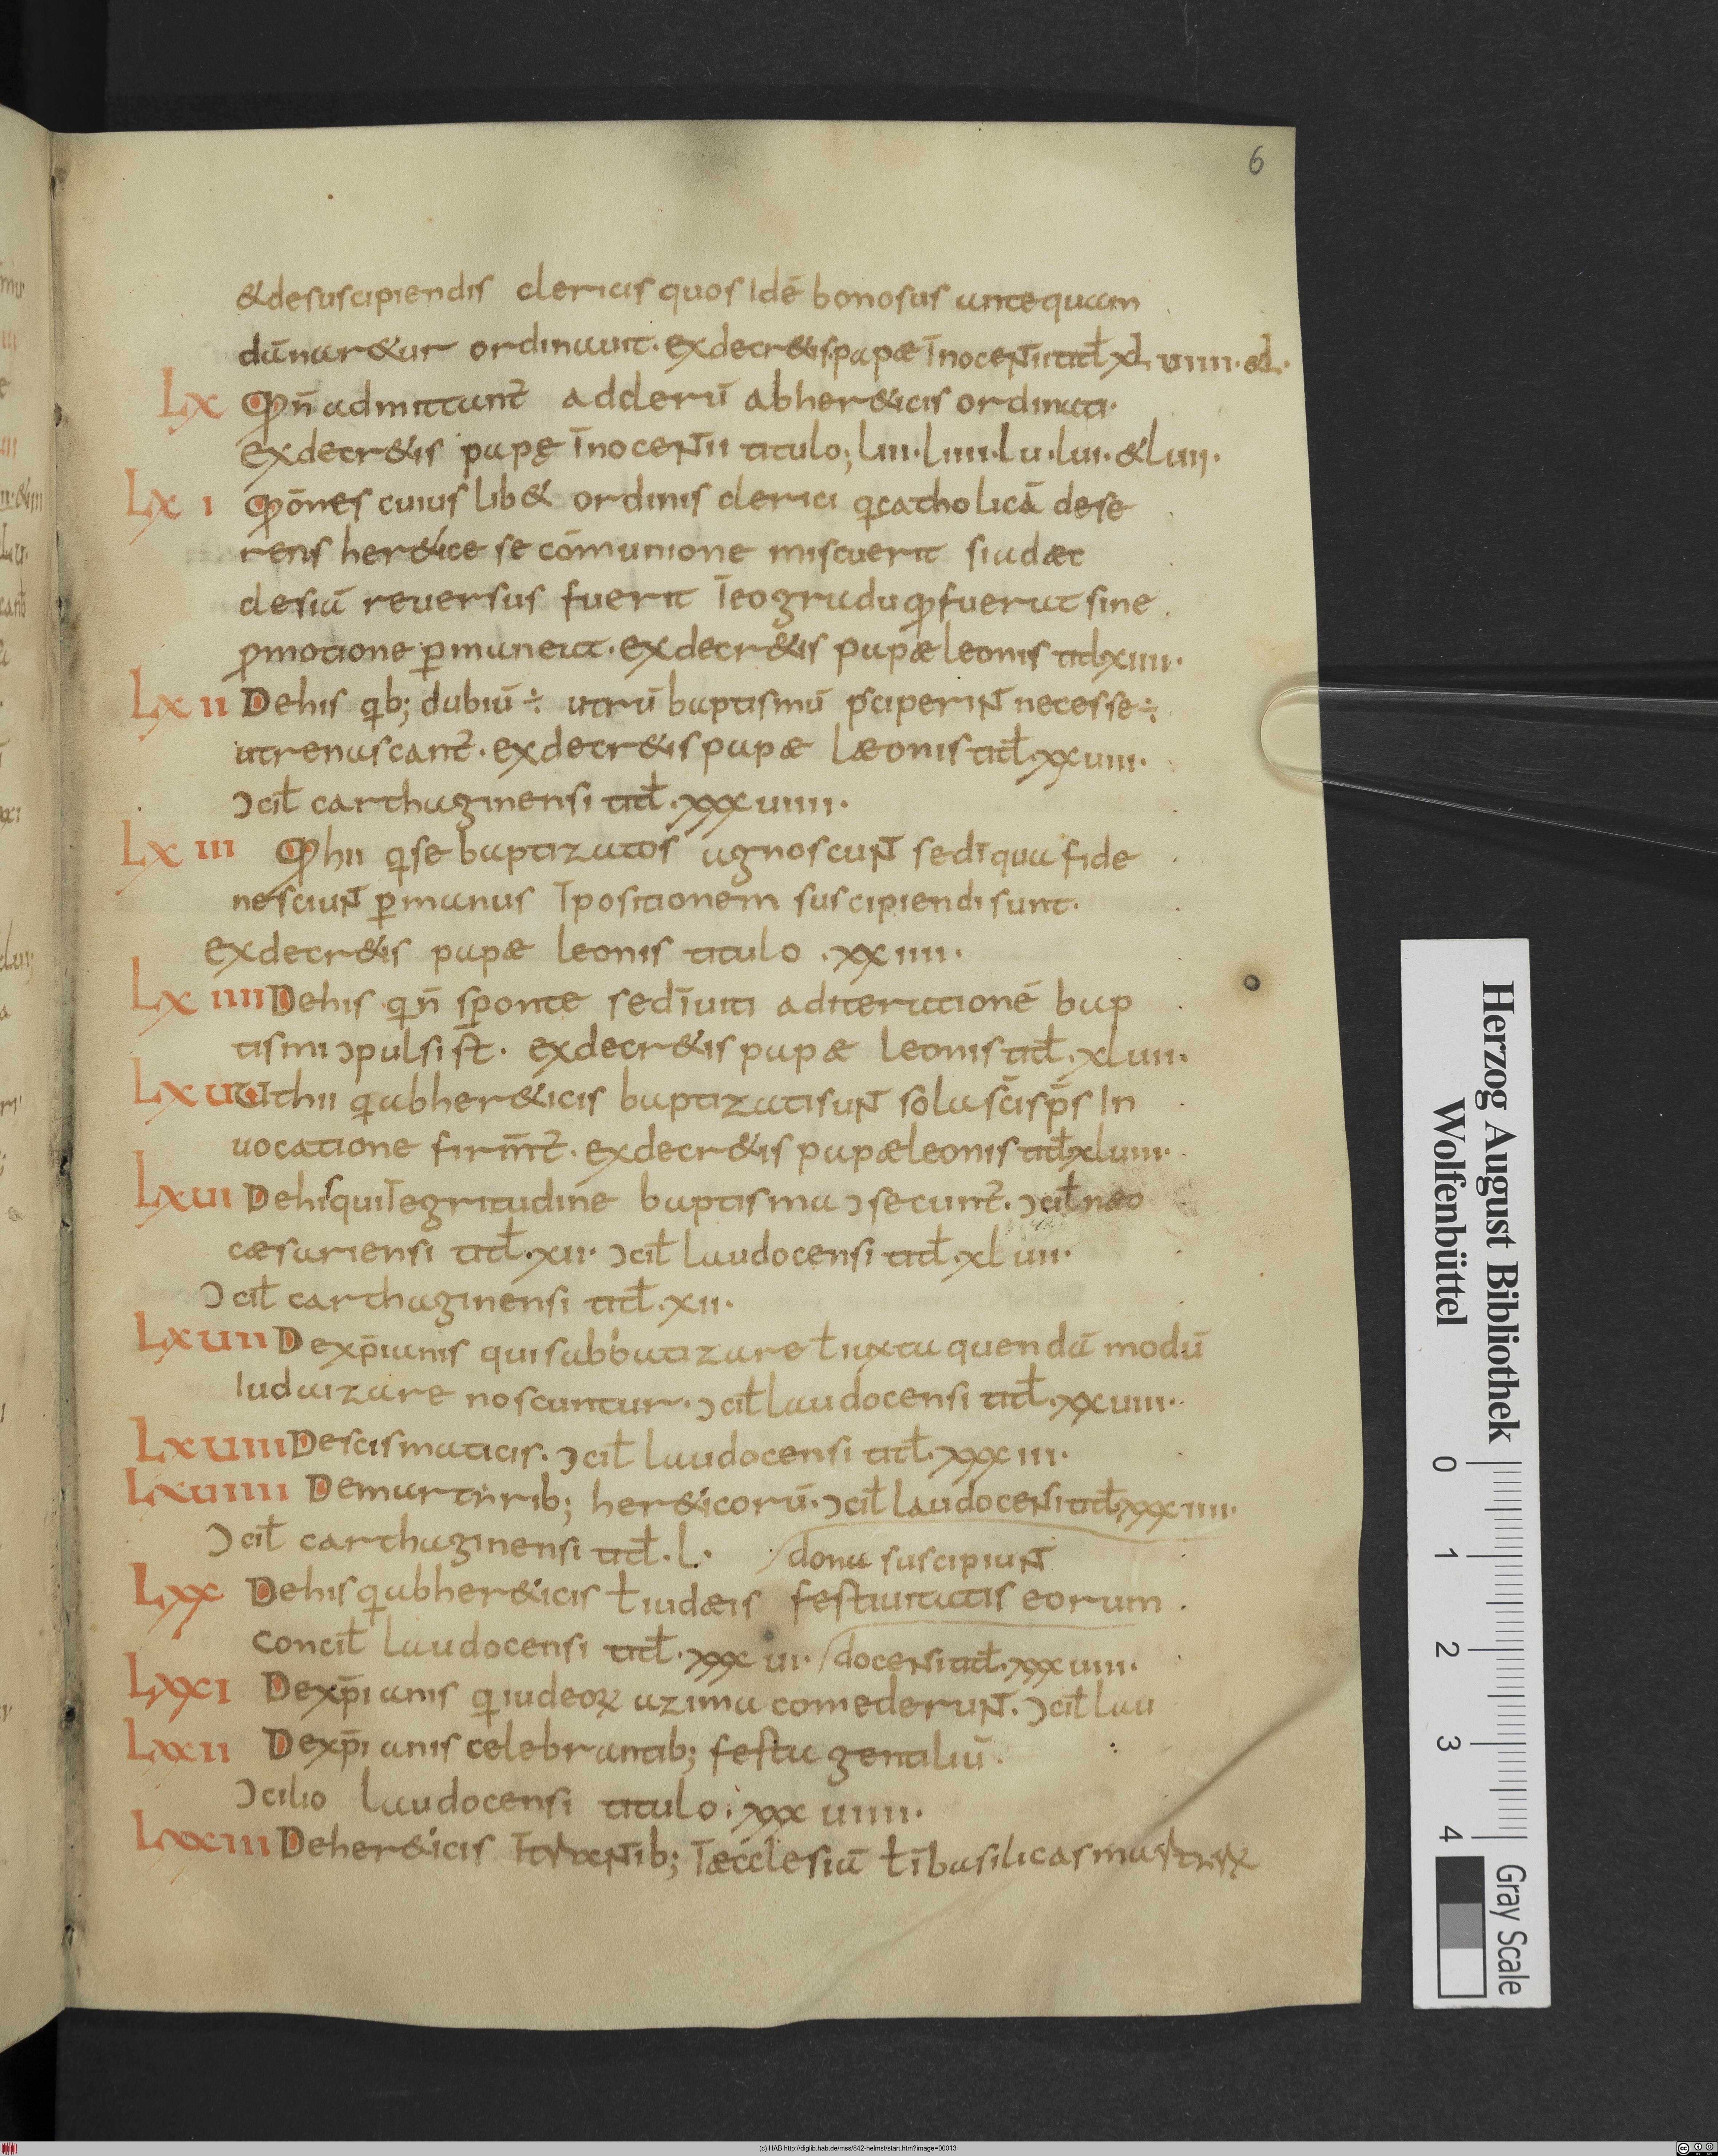 6
&desuscipiendis clericis quos Idē bonosus antequam
dānar&ur ordinauit. exdecr&is papæ Inocentii titl xl uiiii. & l.
Lx Qđ n̄ admittant̄ adclerū abher&icis ordinati.
exdecr&is papę Īnocentii titulo; liii. liiii. lu. lui. & luii.
Lx i Qđ ōnes cuius lib& ordinis clerici q catholicā dese
rens her&ice se cōmunione miscuerit si ad æc
clesiā reuersus fuerit Īeo gradu quo fuerat sine
ꝓmotione ꝑmaneat. exdecr&is papæ leonis titl xiiii.
Lx ii Dehis qb; dubiū ÷ utrū baptismū ꝑciperint necesse ÷
ut renascant̄. exdecr&is papæ læonis titl. xxuiii.
Ɔcil carthaginensi titl. xxxuiiii.
Lx iii Qđ hii q se baptizatos agnoscunt sed ī qua fide
nesciunt ꝑ manus Īpositionem suscipiendi sunt.
exdecr&is papæ leonis titulo . xxiiii.
Lx iiii Dehis q n̄ sponte sed īuiti ad iterationē bap
tismi ɔpulsi st̄. exdecr&is papæ leonis titl. xluii.
Lx u Ut hii q abher&icis baptizati sunt sola sc̄i sp̄s In
uocatione firm̄nt̄. exdecr&is papæ leonis titl xluiii.
Lxui Dehis qui Īegritudine baptisma ɔsecunt̄. ɔcil neo
cæsariensi titl. xii. ɔcil laudocensi titl. xluii.
Ɔcil carthaginensi titl. xii.
Lxuii Dexp̄ianis qui sabbatizare ł iuxta quendā modū
Iudaizare noscuntur. ɔcil laudocensi titl. xxuiiii.
Lxuiii Descismaticis. ɔcil laudocensi titl. xxxiii.
Lxuiiii Demartirib; her&icorū. ɔcil laudocensi titl xxxiiii.
Ɔcil carthaginensi titl. l. / dona suscipiunt
Lxx Dehis q abher&icis ł iudæis festiuitatis eorum
concil laudocensi titl. xxxui. / docensi titl. xxxuiii.
Lxxi Dexp̄ianis q iudeoꝝ azima comederunt. ɔcil lau
Lxxii Dexp̄ianis celebrantib; festa gentiliū.
Ɔcilio laudocensi titulo. xxxuiiii.
Lxxiii Deher&icis Ītrantib; Īæcclesiā ł ī basilicas martirꝝ
Herzog August Bibliothek
Wolfenbüttel
0 1 2 3 4
Gray Scale
(c) HAB http://diglib.hab.de/mss/842-helmst/start.htm?image=00013